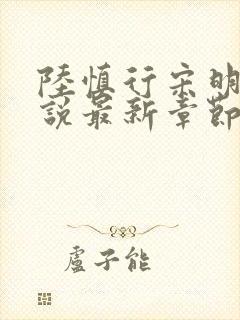 陸慎行宋明
說最新章節
盧子能